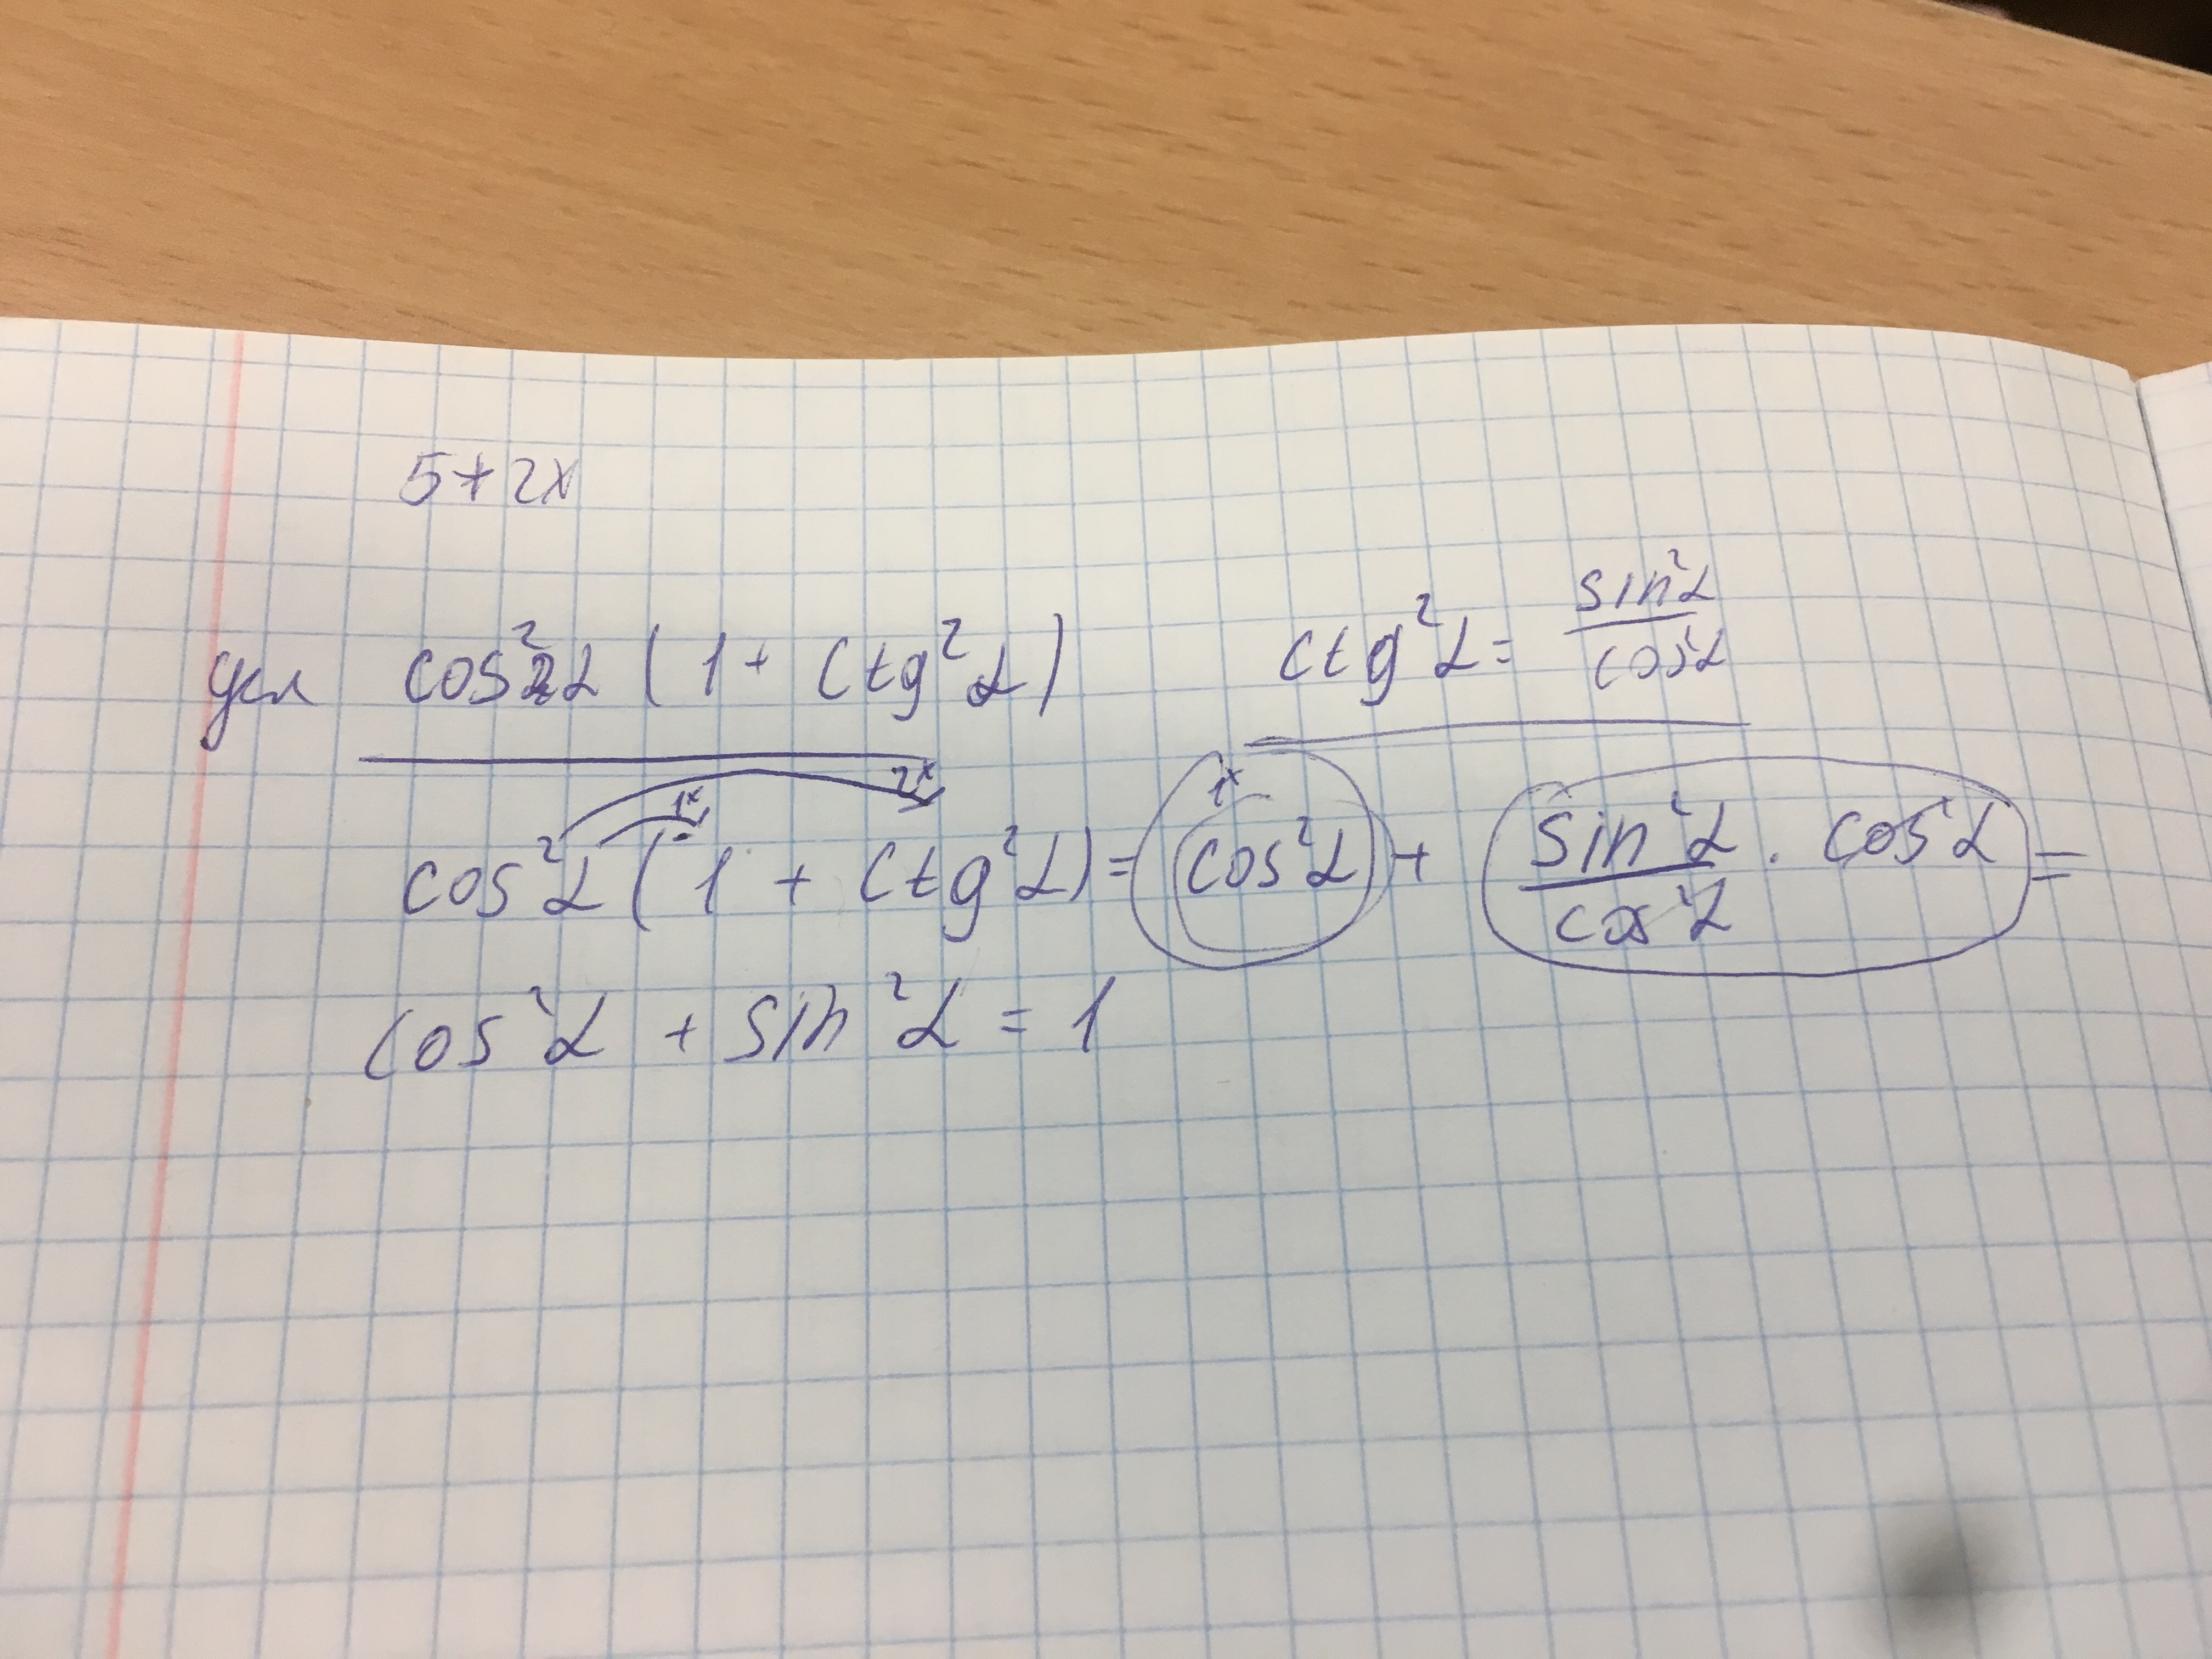 5+2x
усл cos²2α (1 + ctg²α) ctg²α = sin²α/cos²α
1x 2x 1x
cos²α (1 + ctg²α) = cos²α + sin²α/cos²α · cos²α =
cos²α + sin²α = 1